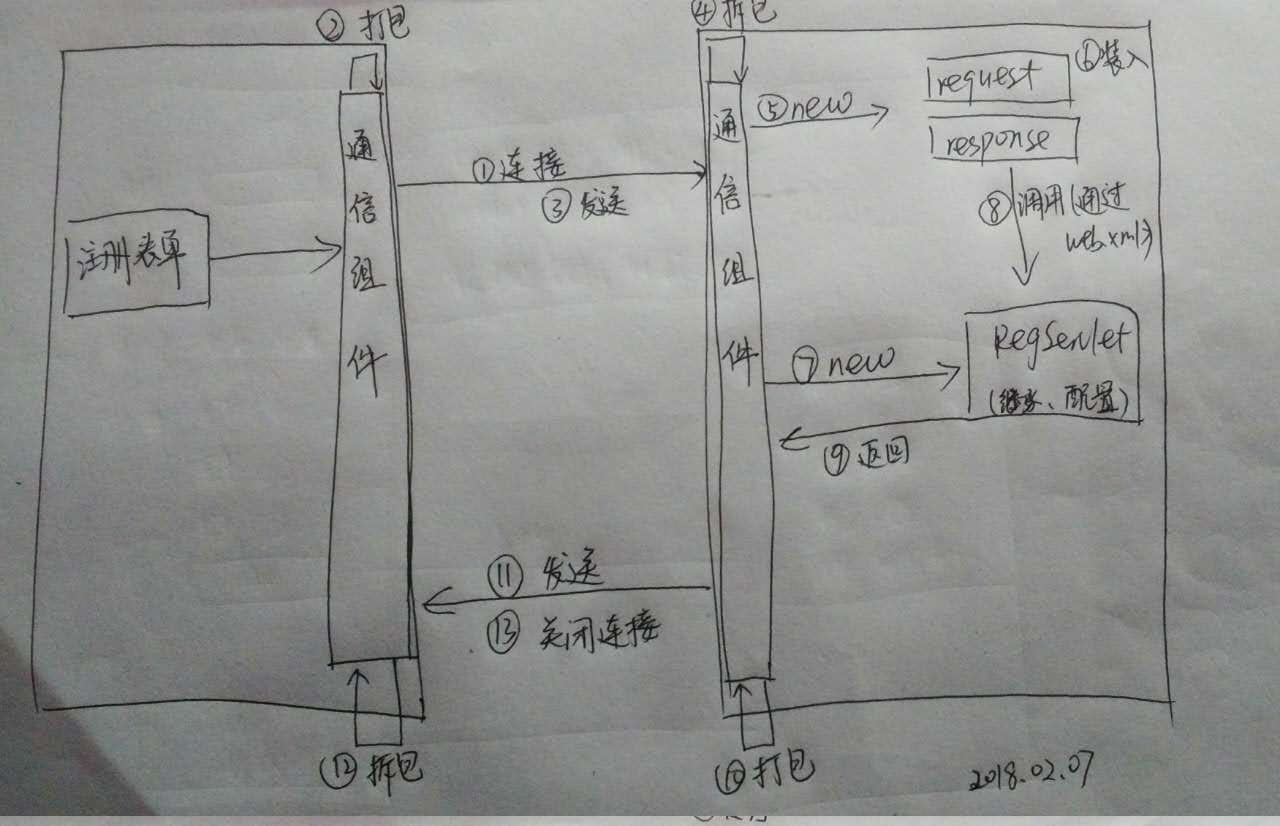 ② 打包
④ 拆包
通信组件
注册表单
① 连接
③ 发送
通信组件
⑤ new
request
⑥ 装入
response
⑧ 调用(通过
web.xml)
⑦ new
RegServlet
(继承、配置)
⑨ 返回
⑪ 发送
⑬ 关闭连接
⑫ 拆包
⑩ 打包
2018.02.07